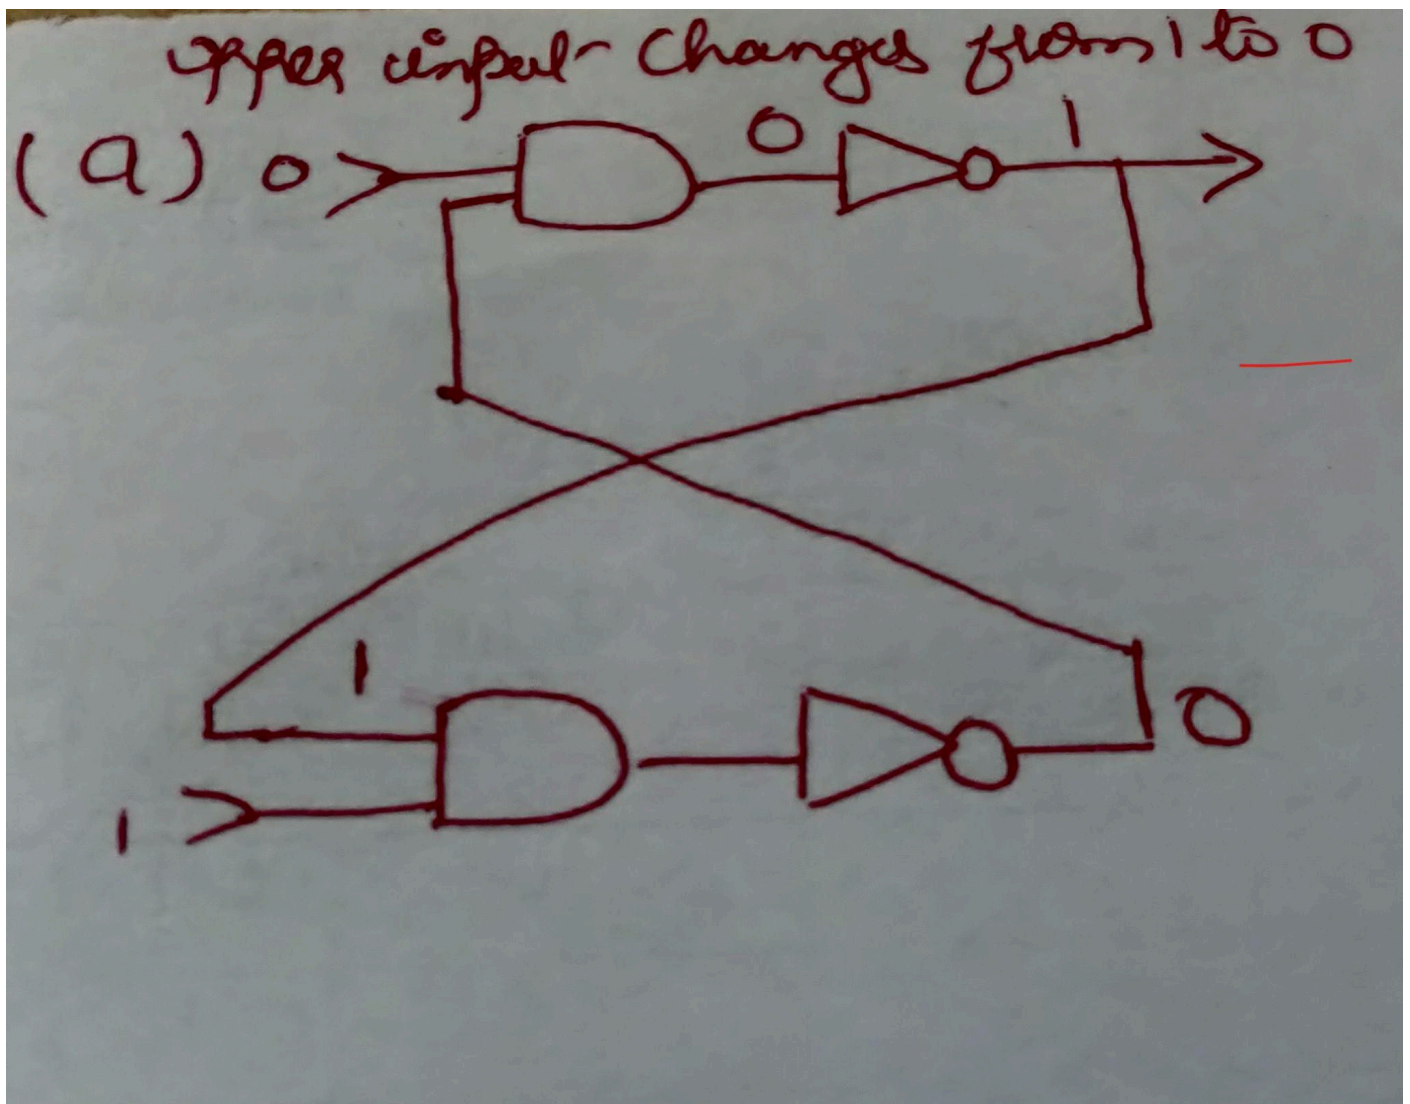 upper input changes from 1 to 0
(a) 0 0 1
1
0
1